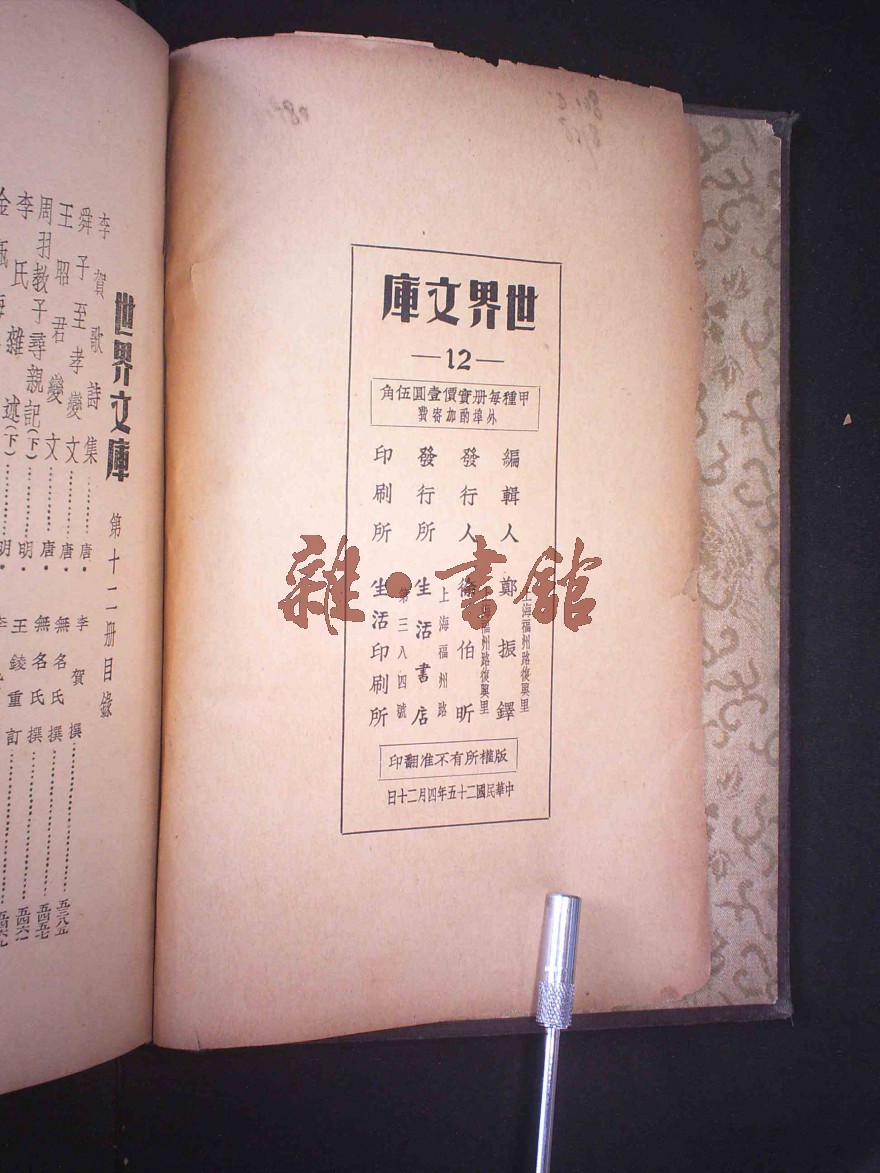 世界文庫
—12—
甲種每册實價壹圓伍角
外埠酌加寄費
上海福州路復興里
編輯人 鄭振鐸
上海福州路復興里
發行人 徐伯昕
上海福州路
第三八四號
發行所 生活書店
印刷所 生活印刷所
版權所有不准翻印
中華民國二十五年四月二十日
雜·書館
世界文庫 第十二册目錄
李賀歌詩集 唐·李賀撰 五三八五
舜子至孝變文 唐·無名氏撰 五四五七
王昭君變文 唐·無名氏撰 五四六一
周羽教子尋親記(下) 明·王錂重訂
李氏雜述(下) 明·李
金瓶梅